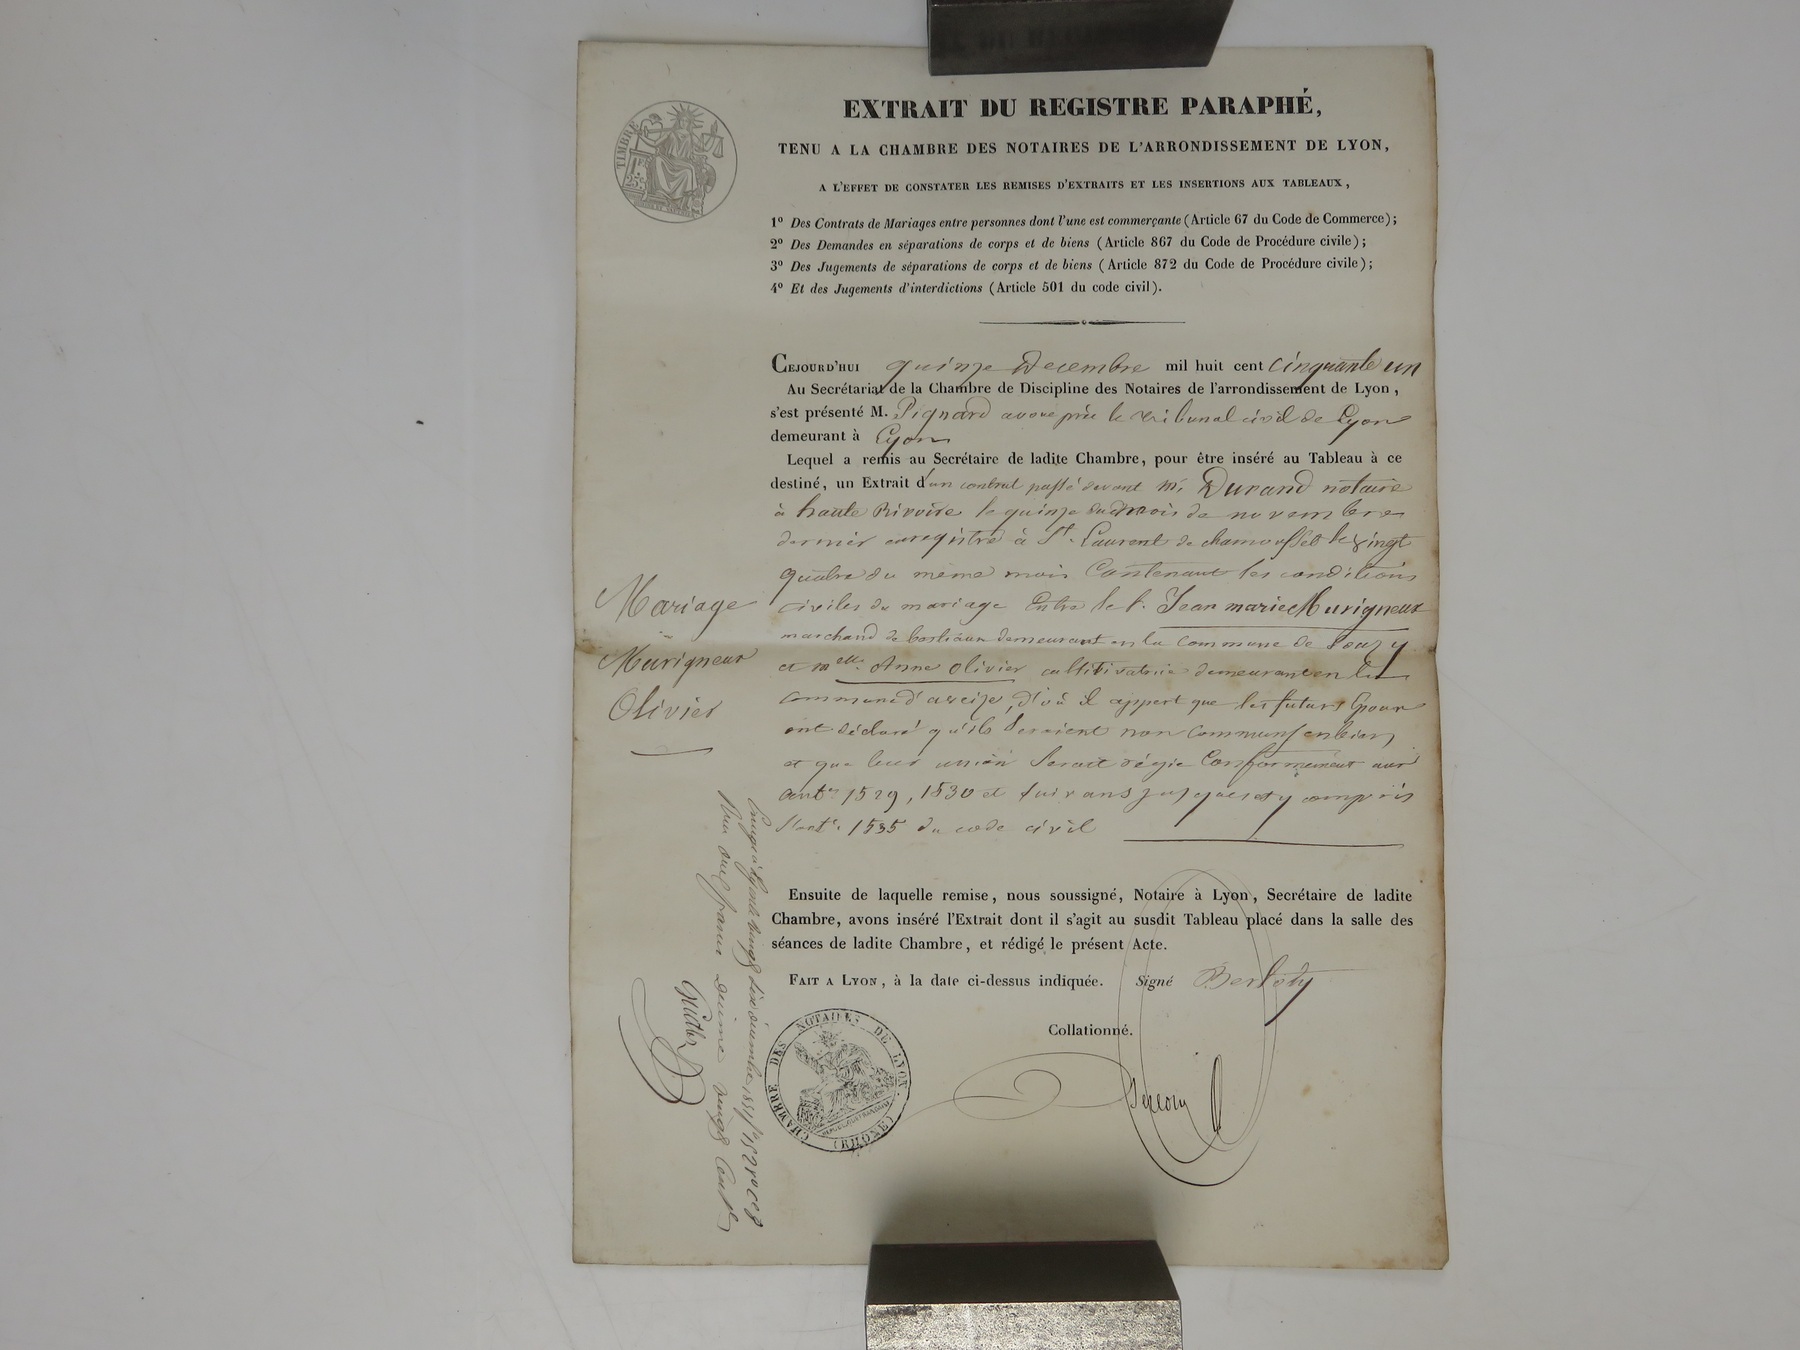 TIMBRE
1 F.
25 C.
EXTRAIT DU REGISTRE PARAPHÉ,
TENU A LA CHAMBRE DES NOTAIRES DE L'ARRONDISSEMENT DE LYON,
A L'EFFET DE CONSTATER LES REMISES D'EXTRAITS ET LES INSERTIONS AUX TABLEAUX,
1º Des Contrats de Mariages entre personnes dont l'une est commerçante (Article 67 du Code de Commerce);
2º Des Demandes en séparations de corps et de biens (Article 867 du Code de Procédure civile);
3º Des Jugements de séparations de corps et de biens (Article 872 du Code de Procédure civile);
4º Et des Jugements d'interdictions (Article 501 du code civil).
CEJOURD'HUI quinze Decembre mil huit cent cinquante un
Au Secrétariat de la Chambre de Discipline des Notaires de l'arrondissement de Lyon,
s'est présenté M. Pignard avoué près le tribunal civil de Lyon
demeurant à Lyon
Lequel a remis au Secrétaire de ladite Chambre, pour être inséré au Tableau à ce
destiné, un Extrait d'un contrat passé devant Me Durand notaire
à haute Rivoire le quinze du mois de novembre
dernier enregistré à St. Laurent de chamousset le vingt
quatre du même mois Contenant les conditions
civiles du mariage Entre le s. Jean marie Murigneux
marchand de bestiaux demeurant en la commune de Souzy
et melle Anne Olivier cultivatrice demeurant en la
commune d'aveize, d'où il appert que les futurs Epoux
ont déclaré qu'ils seroient non communs en biens
et que leur union serait régie Conformément aux
artes 1529, 1530 et suivans jusques et y compris
l'arte. 1535 du code civil
Mariage
Murigneux
Olivier
Ensuite de laquelle remise, nous soussigné, Notaire à Lyon, Secrétaire de ladite
Chambre, avons inséré l'Extrait dont il s'agit au susdit Tableau placé dans la salle des
séances de ladite Chambre, et rédigé le présent Acte.
FAIT A LYON, à la date ci-dessus indiquée. Signé Berloty
Collationné.
CHAMBRE DES NOTAIRES DE LYON.
(RHONE)
à Lyon le vingt six décembre 1851 fo 152
Reçu un franc decime vingt cent